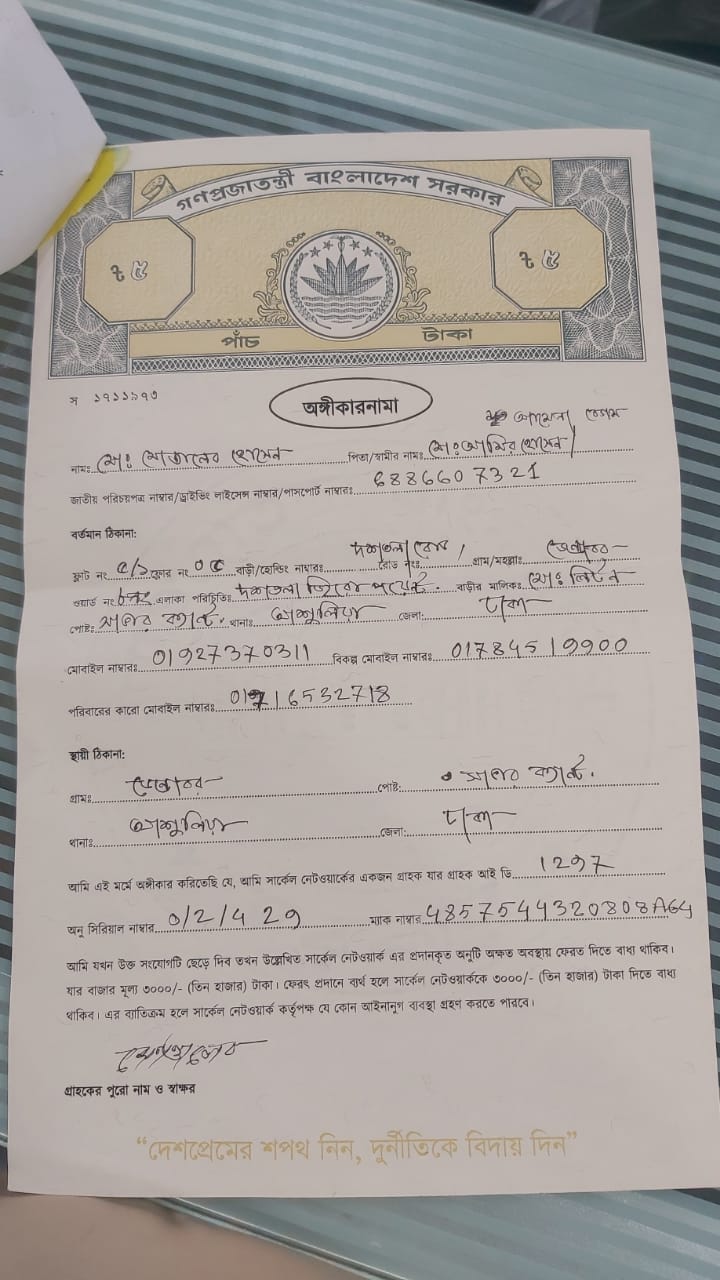 গণপ্রজাতন্ত্রী বাংলাদেশ সরকার
ট ৫ ট ৫
পাঁচ টাকা
স ১৭১১৯৭৩
অঙ্গীকারনামা
আমেনা বেগম
নামঃ মোঃ হোসেন পিতা/স্বামীর নামঃ মোঃ আমির হোসেন
জাতীয় পরিচয়পত্র নাম্বার/ড্রাইভিং লাইসেন্স নাম্বার/পাসপোর্ট নাম্বারঃ 6886607321
বর্তমান ঠিকানা:
ফ্লাট নং ৫/১ ফ্লোর নং ০৫ বাড়ী/হোল্ডিং নাম্বারঃ দশতলা রোড নংঃ গ্রাম/মহল্লাঃ
ওয়ার্ড নং এলাকা পরিচিতিঃ দশতলা জিরো পয়েন্ট. বাড়ীর মালিকঃ মোঃ লিটন
পোষ্ট: সাভার ক্যান্ট. থানাঃ আশুলিয়া জেলা: ঢাকা
মোবাইল নাম্বারঃ 01927370311 বিকল্প মোবাইল নাম্বারঃ 01784519900
পরিবারের কারো মোবাইল নাম্বারঃ 01716532718
স্থায়ী ঠিকানা:
গ্রামঃ পোষ্ট: সাভার ক্যান্ট.
থানাঃ আশুলিয়া জেলা: ঢাকা
আমি এই মর্মে অঙ্গীকার করিতেছি যে, আমি সার্কেল নেটওয়ার্কের একজন গ্রাহক যার গ্রাহক আই ডি 1297
অনু সিরিয়াল নাম্বার 0/2/4 29 ম্যাক নাম্বার 4857544320808A64
আমি যখন উক্ত সংযোগটি ছেড়ে দিব তখন উল্লেখিত সার্কেল নেটওয়ার্ক এর প্রদানকৃত অনুটি অক্ষত অবস্থায় ফেরত দিতে বাধ্য থাকিব।
যার বাজার মূল্য ৩০০০/- (তিন হাজার) টাকা। ফেরৎ প্রদানে ব্যর্থ হলে সার্কেল নেটওয়ার্ককে ৩০০০/- (তিন হাজার) টাকা দিতে বাধ্য
থাকিব। এর ব্যতিক্রম হলে সার্কেল নেটওয়ার্ক কর্তৃপক্ষ যে কোন আইনানুগ ব্যবস্থা গ্রহণ করতে পারবে।
গ্রাহকের পুরো নাম ও স্বাক্ষর
“দেশপ্রেমের শপথ নিন, দুর্নীতিকে বিদায় দিন”